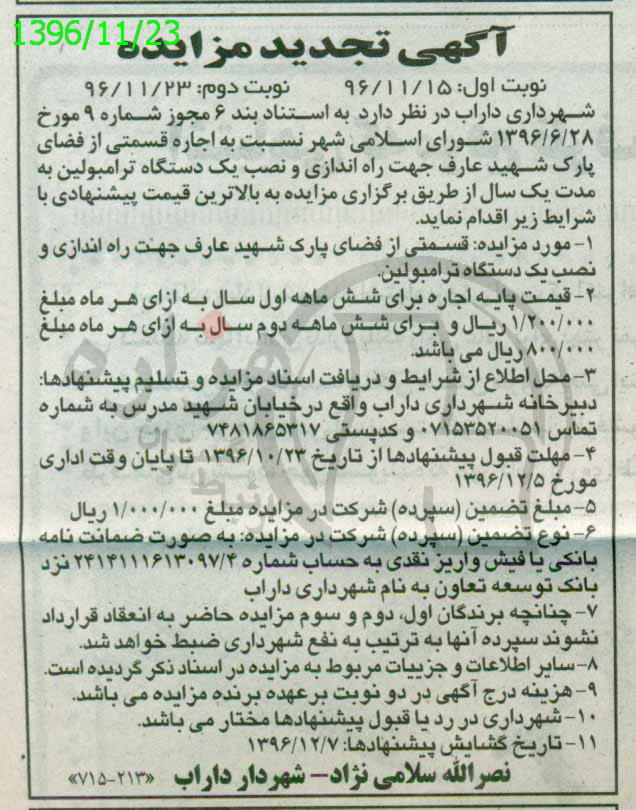 1396/11/23
آگهی تجدید مزایده
نوبت اول: ۹۶/۱۱/۱۵ نوبت دوم: ۹۶/۱۱/۲۳
شهرداری داراب در نظر دارد به استناد بند ۶ مجوز شماره ۹ مورخ
۱۳۹۶/۶/۲۸ شورای اسلامی شهر نسبت به اجاره قسمتی از فضای
پارک شهید عارف جهت راه اندازی و نصب یک دستگاه ترامبولین به
مدت یک سال از طریق برگزاری مزایده به بالاترین قیمت پیشنهادی با
شرایط زیر اقدام نماید.
۱- مورد مزایده: قسمتی از فضای پارک شهید عارف جهت راه اندازی و
نصب یک دستگاه ترامبولین.
۲- قیمت پایه اجاره برای شش ماهه اول سال به ازای هر ماه مبلغ
۱/۲۰۰/۰۰۰ ریال و برای شش ماهه دوم سال به ازای هر ماه مبلغ
۸۰۰/۰۰۰ ریال می باشد.
۳- محل اطلاع از شرایط و دریافت اسناد مزایده و تسلیم پیشنهادها:
دبیرخانه شهرداری داراب واقع در خیابان شهید مدرس به شماره
تماس ۰۷۱۵۳۵۲۰۰۵۱ و کدپستی ۷۴۸۱۸۶۵۳۱۷
۴- مهلت قبول پیشنهادها از تاریخ ۱۳۹۶/۱۰/۲۳ تا پایان وقت اداری
مورخ ۱۳۹۶/۱۲/۵
۵- مبلغ تضمین (سپرده) شرکت در مزایده مبلغ ۱/۰۰۰/۰۰۰ ریال
۶- نوع تضمین (سپرده) شرکت در مزایده: به صورت ضمانت نامه
بانکی یا فیش واریز نقدی به حساب شماره ۲۴۱۴۱۱۱۶۱۳۰۹۷/۴ نزد
بانک توسعه تعاون به نام شهرداری داراب
۷- چنانچه برندگان اول، دوم و سوم مزایده حاضر به انعقاد قرارداد
نشوند سپرده آنها به ترتیب به نفع شهرداری ضبط خواهد شد.
۸- سایر اطلاعات و جزییات مربوط به مزایده در اسناد ذکر گردیده است.
۹- هزینه درج آگهی در دو نوبت بر عهده برنده مزایده می باشد.
۱۰- شهرداری در رد یا قبول پیشنهادها مختار می باشد.
۱۱- تاریخ گشایش پیشنهادها: ۱۳۹۶/۱۲/۷
نصرالله سلامی نژاد- شهردار داراب «۷۱۵-۲۱۳»
هزاره